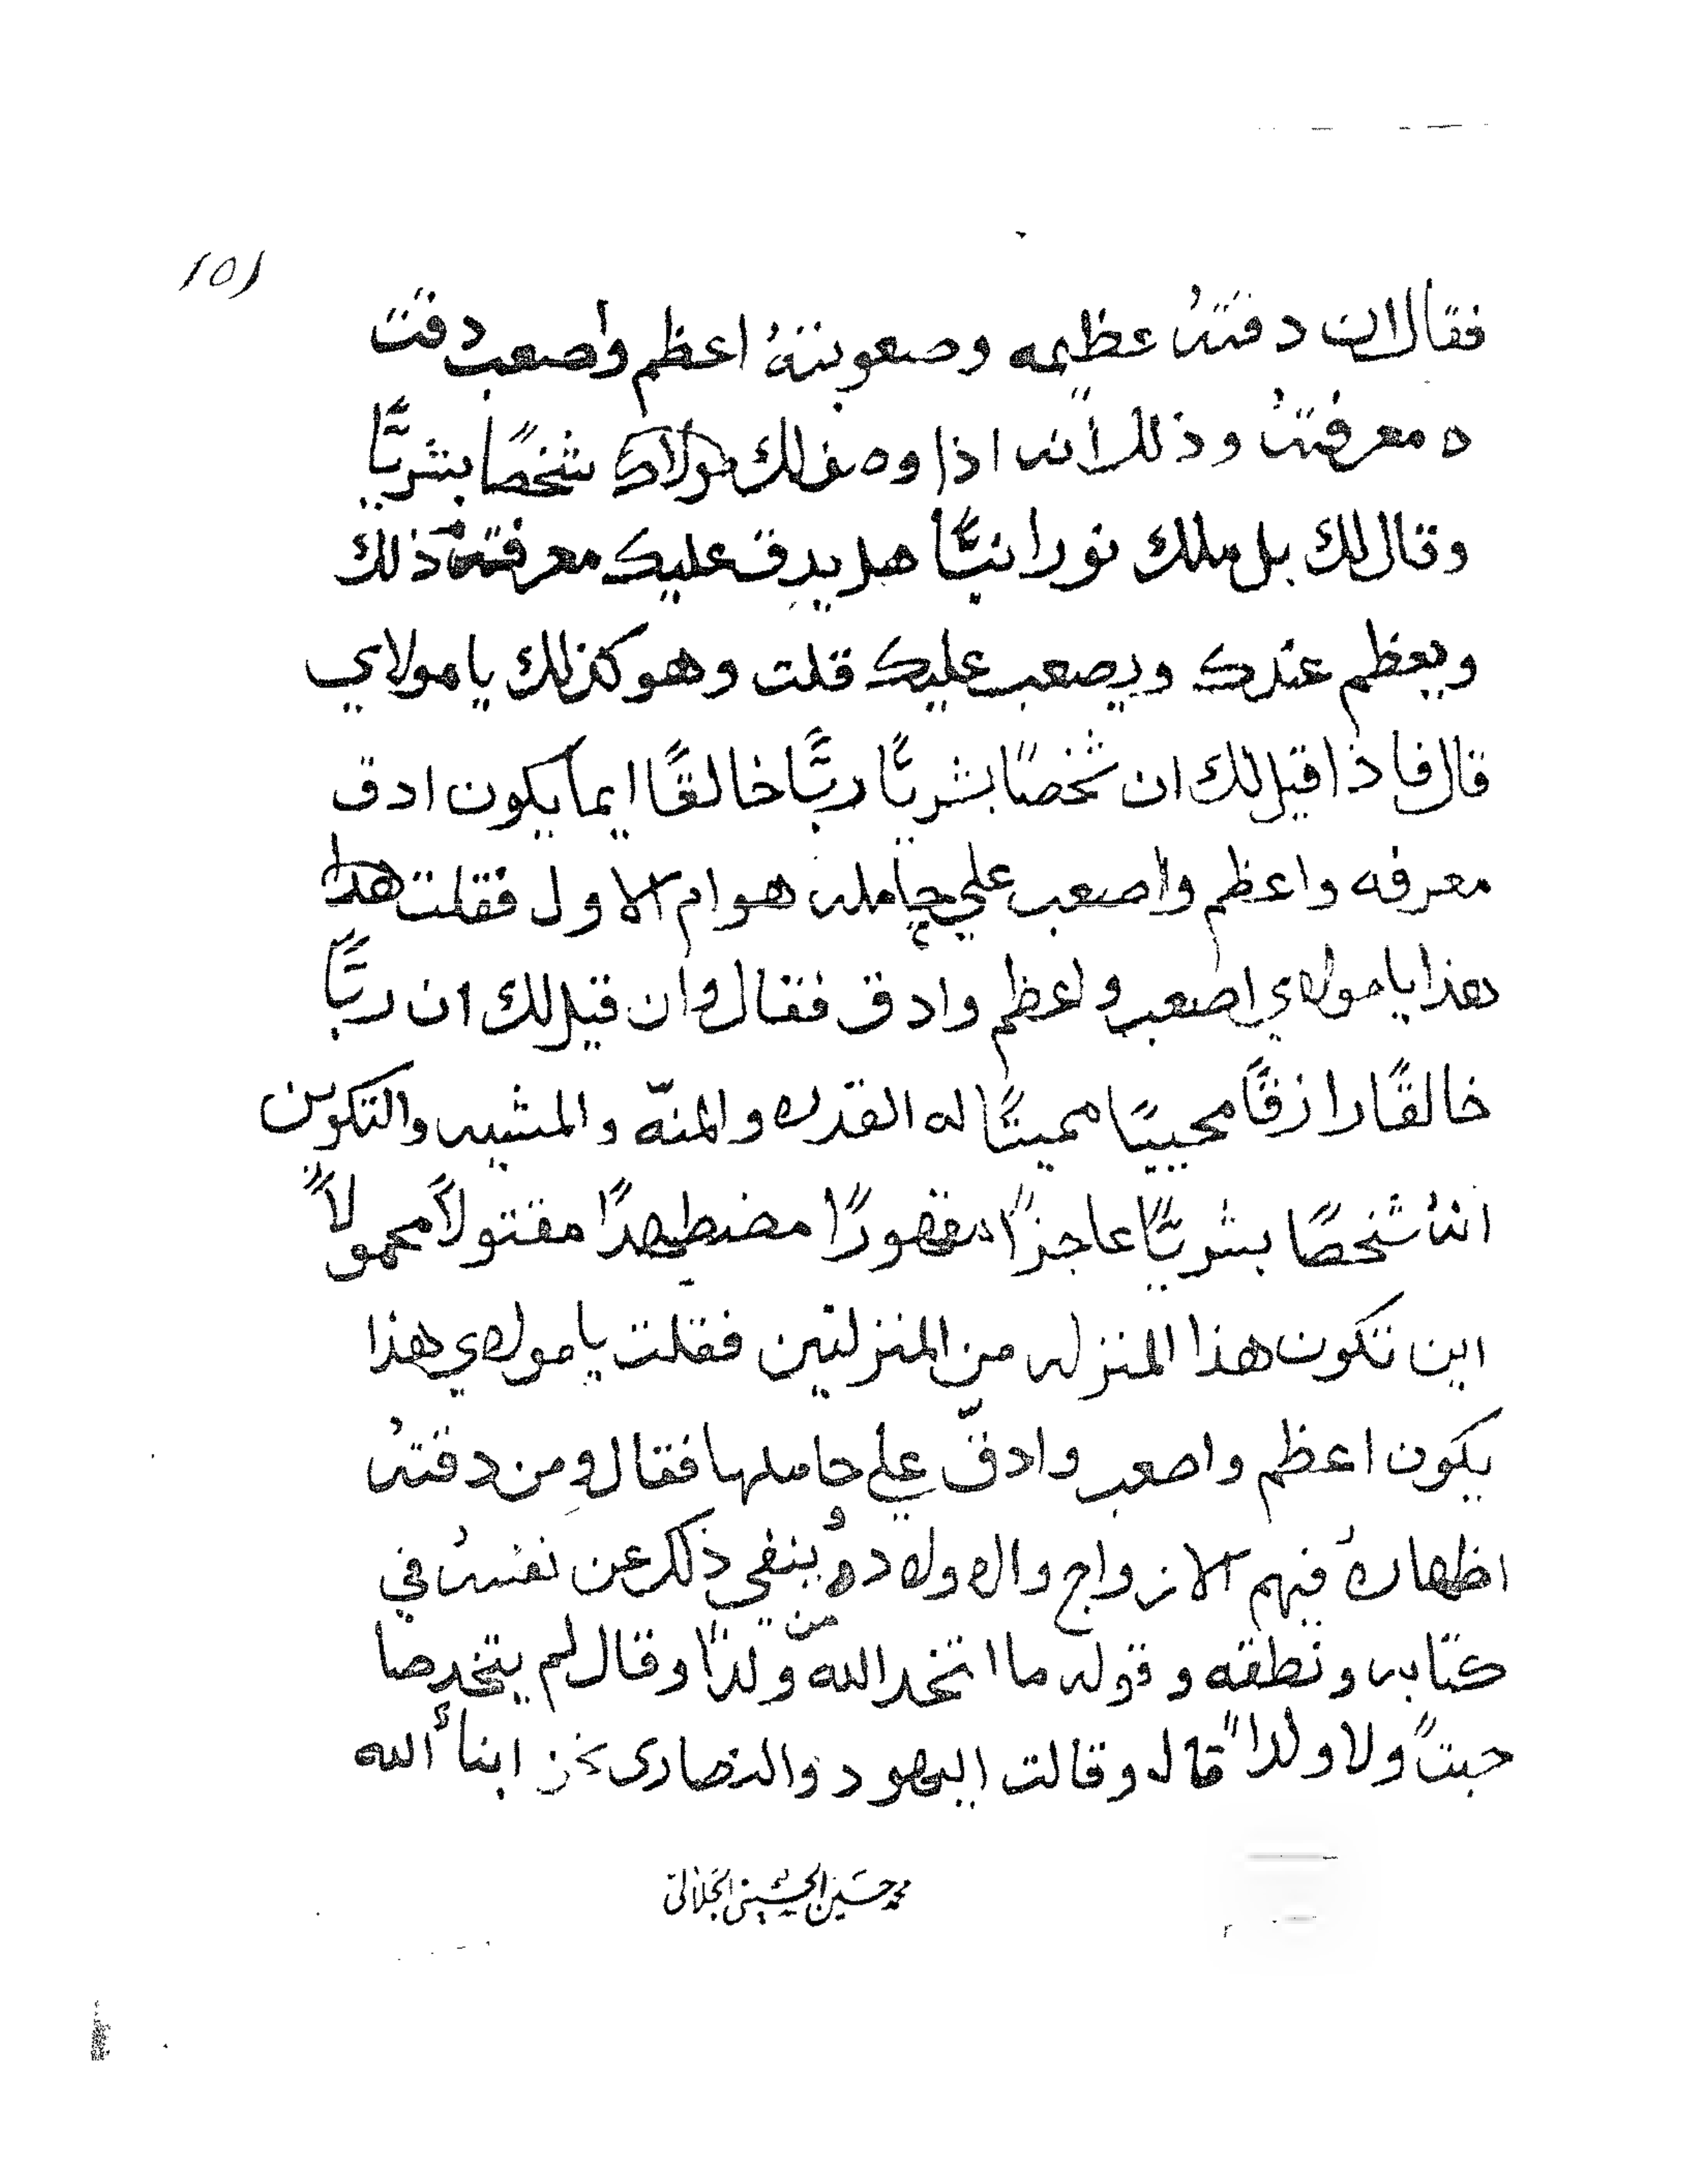 ١٥١
فقال ان دقتهُ عظيمه وصعوبتهُ اعظم واصعب دقت
ه معرفتهُ وذلك انه اذا وصف لك مولاك شخصًا بشريًّا
وقال لك بل ملك نورانيًّا هل يدق عليك معرفته ذلك
ويعظم عندك ويصعب عليك قلت وهو كذلك يا مولاي
قال فاذا قيل لك ان شخصًا بشريًّا ربًّا خالقًا ايما يكون ادق
معرفه واعظم واصعب علي حامله هو ام الاول فقلت هذا
هذا يا مولاي اصعب واعظم وادق فقال وان قيل لك ان ربًّا
خالقًا رازقًا محييًا مميتًا له القدره والمنّه والمشيه والتكوين
انهُ شخصًا بشريًّا عاجزًا مقهورًا مضطهدًا مقتولاً محمولاً
اين تكون هذا المنزله من المنزلتين فقلت يا مولاي هذا
يكون اعظم واصعب وادقّ علي حاملها فقال ومن دقتهُ
اظهارهُ فيهم الازواج والاولاد وينفي ذلك عن نفسهُ في
كتابه ونطقه وقوله ما اتخد الله من ولدًا وقال لم يتخد صا
حبتً ولا ولداً قال وقالت اليهود والنصارى نحن ابناُ الله
محمد حسين الحسيني الجلالي